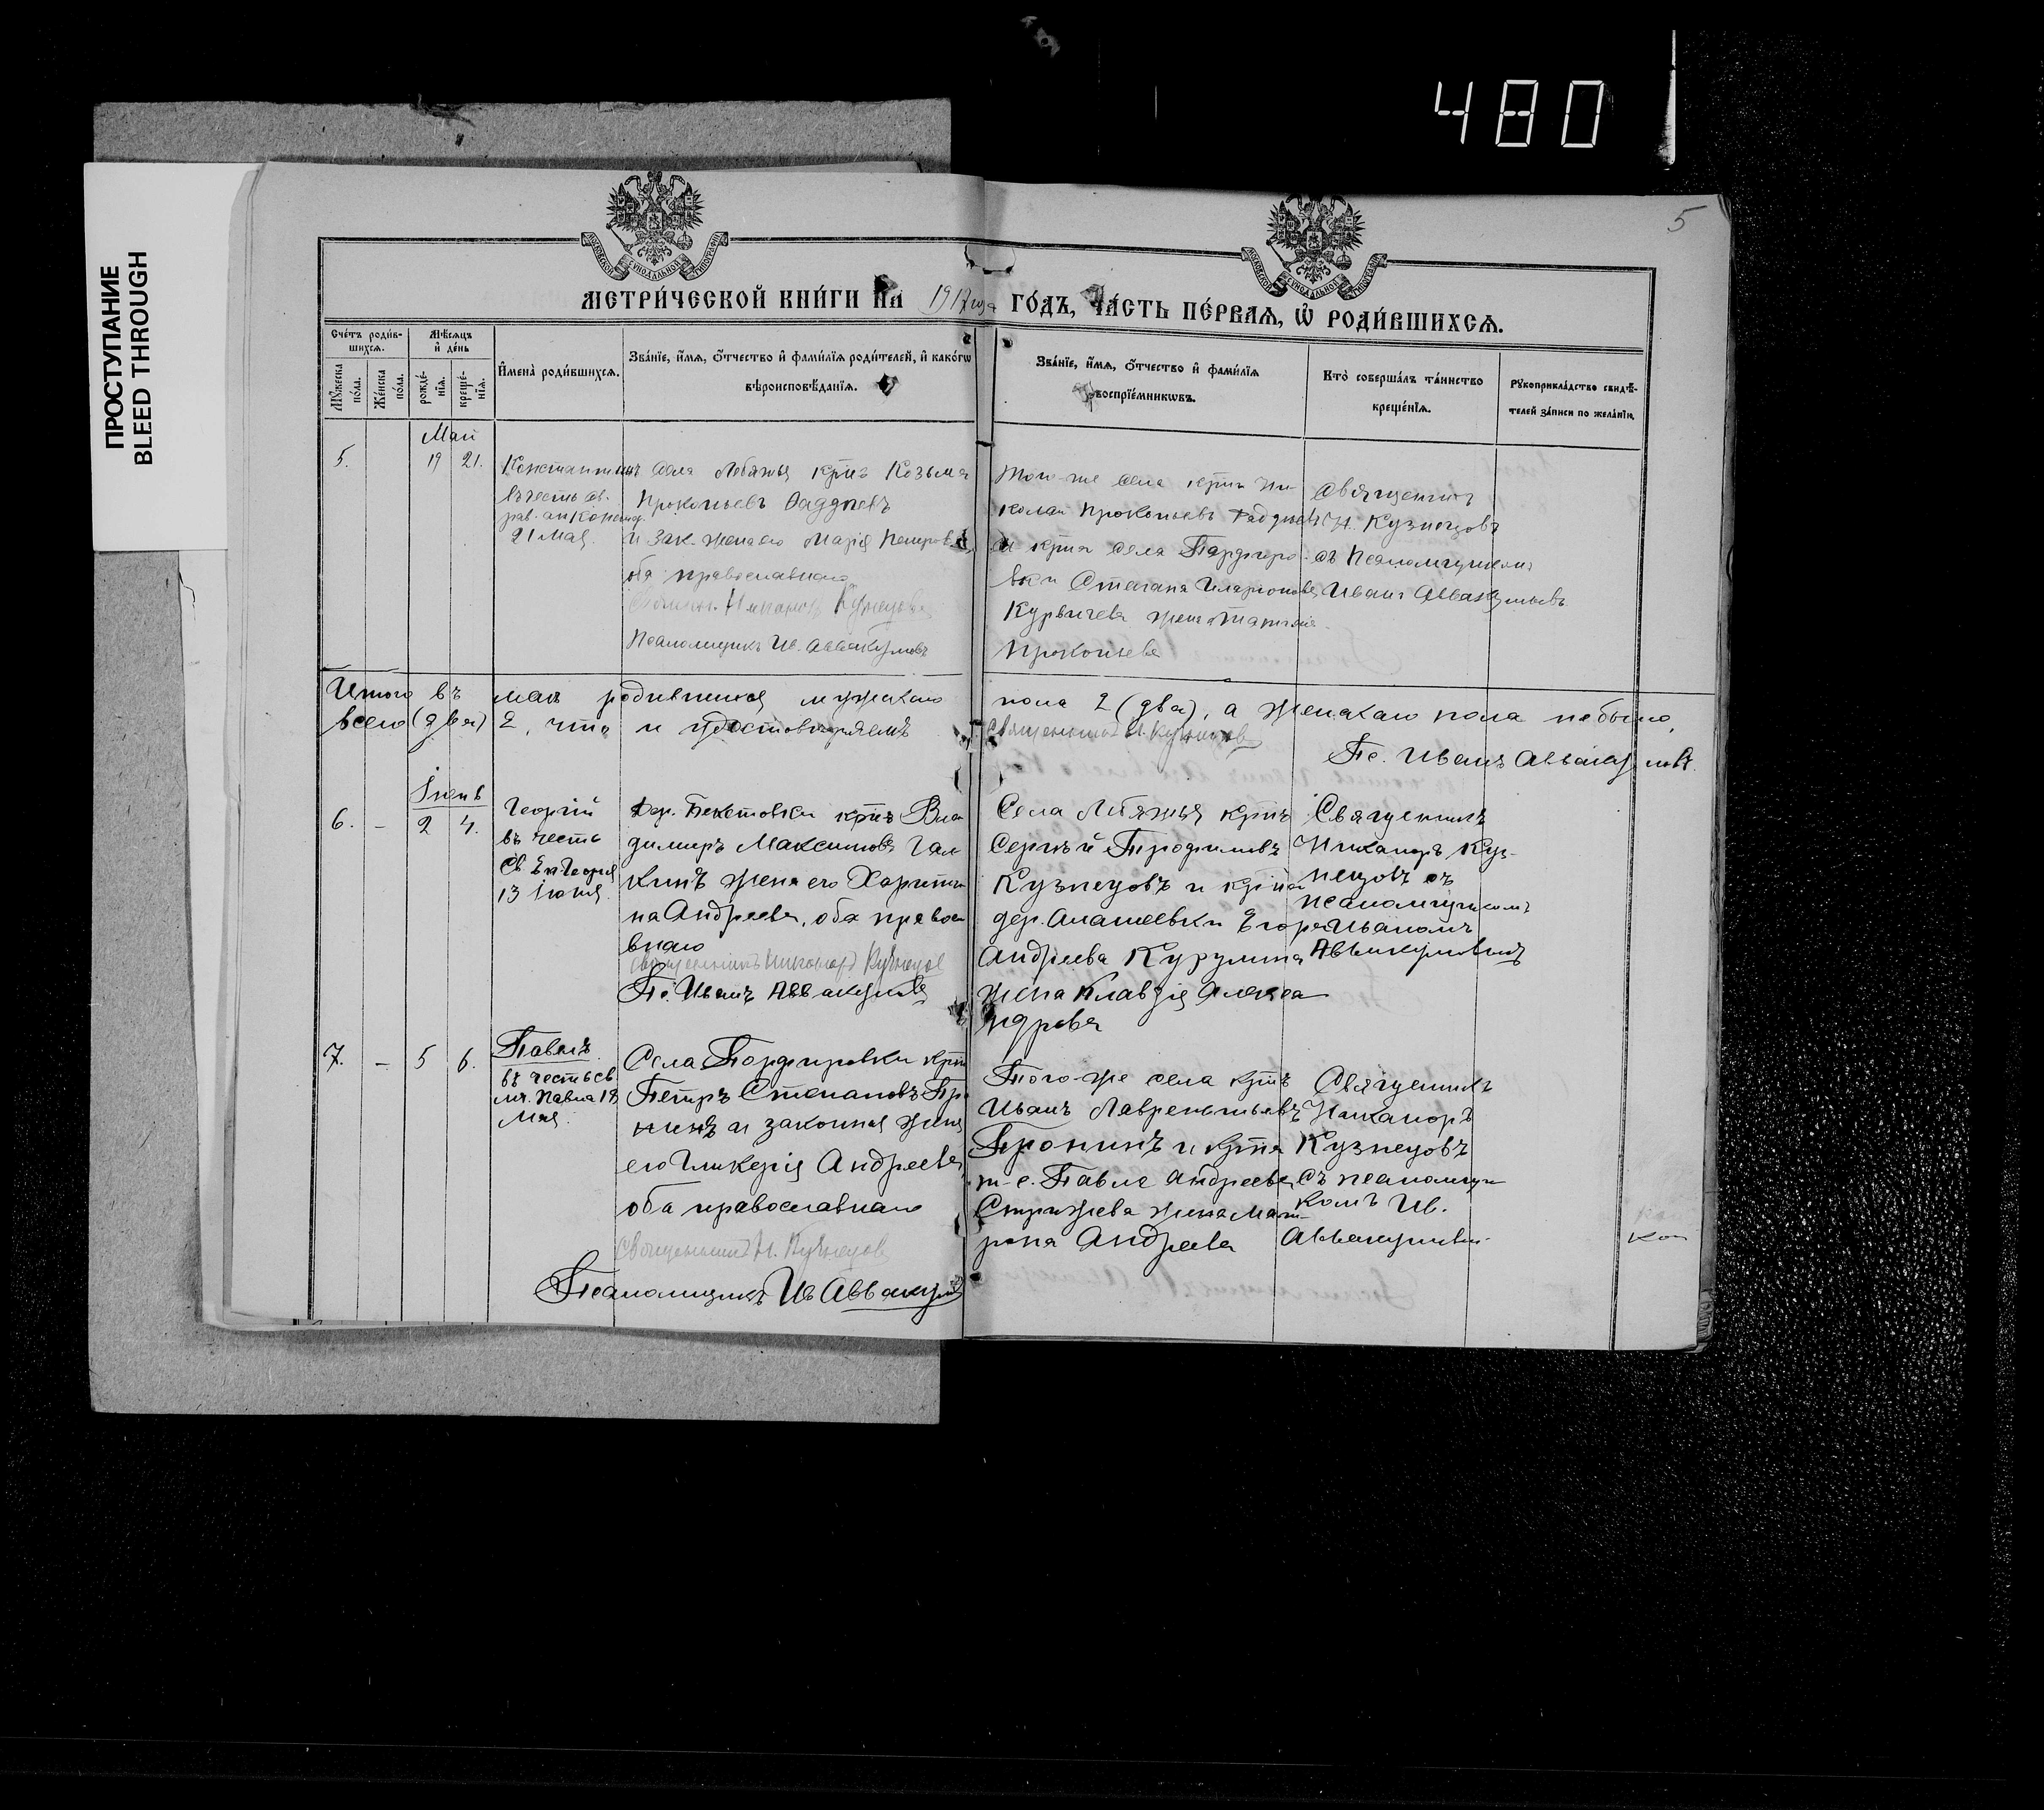 480
5
ПРОСТУПАНИЕ
BLEED THROUGH
МОСКОВСКОЙ СѴНОДАЛЬНОЙ ТИПОГРАФІИ
МОСКОВСКОЙ СѴНОДАЛЬНОЙ ТИПОГРАФІИ
МЕТРИ́ЧЕСКОЙ КНИ́ГИ НА 1917 года ГО́ДЪ, ЧА́СТЬ ПЕ́РВАЯ, Ѽ РОДИ́ВШИХСЯ.
Сче́тъ роди́в-
шихся.
Мꙋ́жеска по́ла.
Же́нска по́ла.
Мѣ́сяцъ
и҆ де́нь
рожде́-
нїя.
креще́-
нїя.
И҆мена̀ роди́вшихся.
Зва́нїе, и҆́мя, ѻ҆́тчество и҆ фами́лїя роди́телей, и҆ како́гѡ
вѣроисповѣ́данїя.
Зва́нїе, и҆́мя, ѻ҆́тчество и҆ фами́лїя
воспрїе́мникѡвъ.
Кто̀ соверша́лъ та́инство
креще́нїя.
Рꙋкоприкла́дство свидѣ́-
телей за́писи по жела́нїю.
Май
5.
19
21.
Константинъ
въ честь св.
рав. ап. Констан.
21 Мая.
Села Лебяжья крнъ Козьма
Прокопьевъ Фаддѣевъ
и зак. жена его Марія Петрова
оба православнаго
Священ. Никаноръ Кузнецовъ
Псаломщикъ Ив. Аввакумовъ
Того-же села крнъ Ни-
колай Прокопьевъ Фаддѣевъ
и крнка села Порфиро-
вки Степана Иларионова
Курвичева жена Татiана
Прокопьева
Священникъ
Н. Кузнецовъ
съ псаломщикомъ
Иванъ Аввакумовъ
Итого въ маѣ родившихся мужскаго пола 2 (два), а женскаго пола не было,
всего (два) 2, что и удостовѣряемъ
Священникъ Н. Кузнецовъ
Пс. Иванъ Аввакумовъ.
Іюнь
6.
–
2
4.
Георгій
въ честь
Св. Еп. Георгія
13 Іюня.
Дер. Бекетовки крнъ Вла
димиръ Максимовъ Гал
кинъ жена его Харити
на Андреева, оба правосл
внаго
Священникъ Никаноръ Кузнецовъ
Пс. Иванъ Аввакумовъ
Села Лебяжья крнъ
Сергѣй Трофимовъ
Кузнецовъ и крнка
дер. Алашеевки Егора
Андреева Курулина
жена Клавдія Алекса
ндрова
Священникъ
Никаноръ Куз-
нецовъ съ
псаломщикомъ
Иваномъ
Аввакумовымъ
7.
–
5
6.
Павелъ
въ честь св.
мч. Павла 18
Мая.
Села Порфировки крнъ
Петръ Степановъ Про
нинъ и законная жена
его Гликерія Андреева,
оба православнаго
Священникъ Н. Кузнецовъ
Псаломщикъ Ив. Аввакумовъ
Того-же села крнъ
Иванъ Лаврентьевъ
Пронинъ и крнка
т-с. Павла Андреева
Стрижева жена Мат-
рона Андреева
Священникъ
Никаноръ
Кузнецовъ
съ псаломщи
комъ Ив.
Аввакумовым